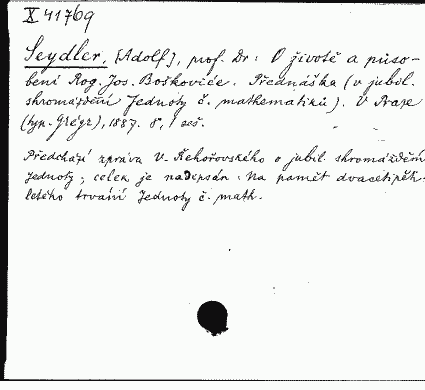 X 41769
Seydler, [Adolf], prof. Dr: O životě a půso-
bení Rog. Jos. Boškoviće. Přednáška (v jubil.
shromáždění Jednoty č. mathematiků). V Praze
(typ. Grégr), 1887. 8°, 1 seš.
Předchází zpráva V. Řehořovského o jubil. shromáždění
jednoty; celek je nadepsán: Na paměť dvacetipěti-
letého trvání Jednoty č. math.